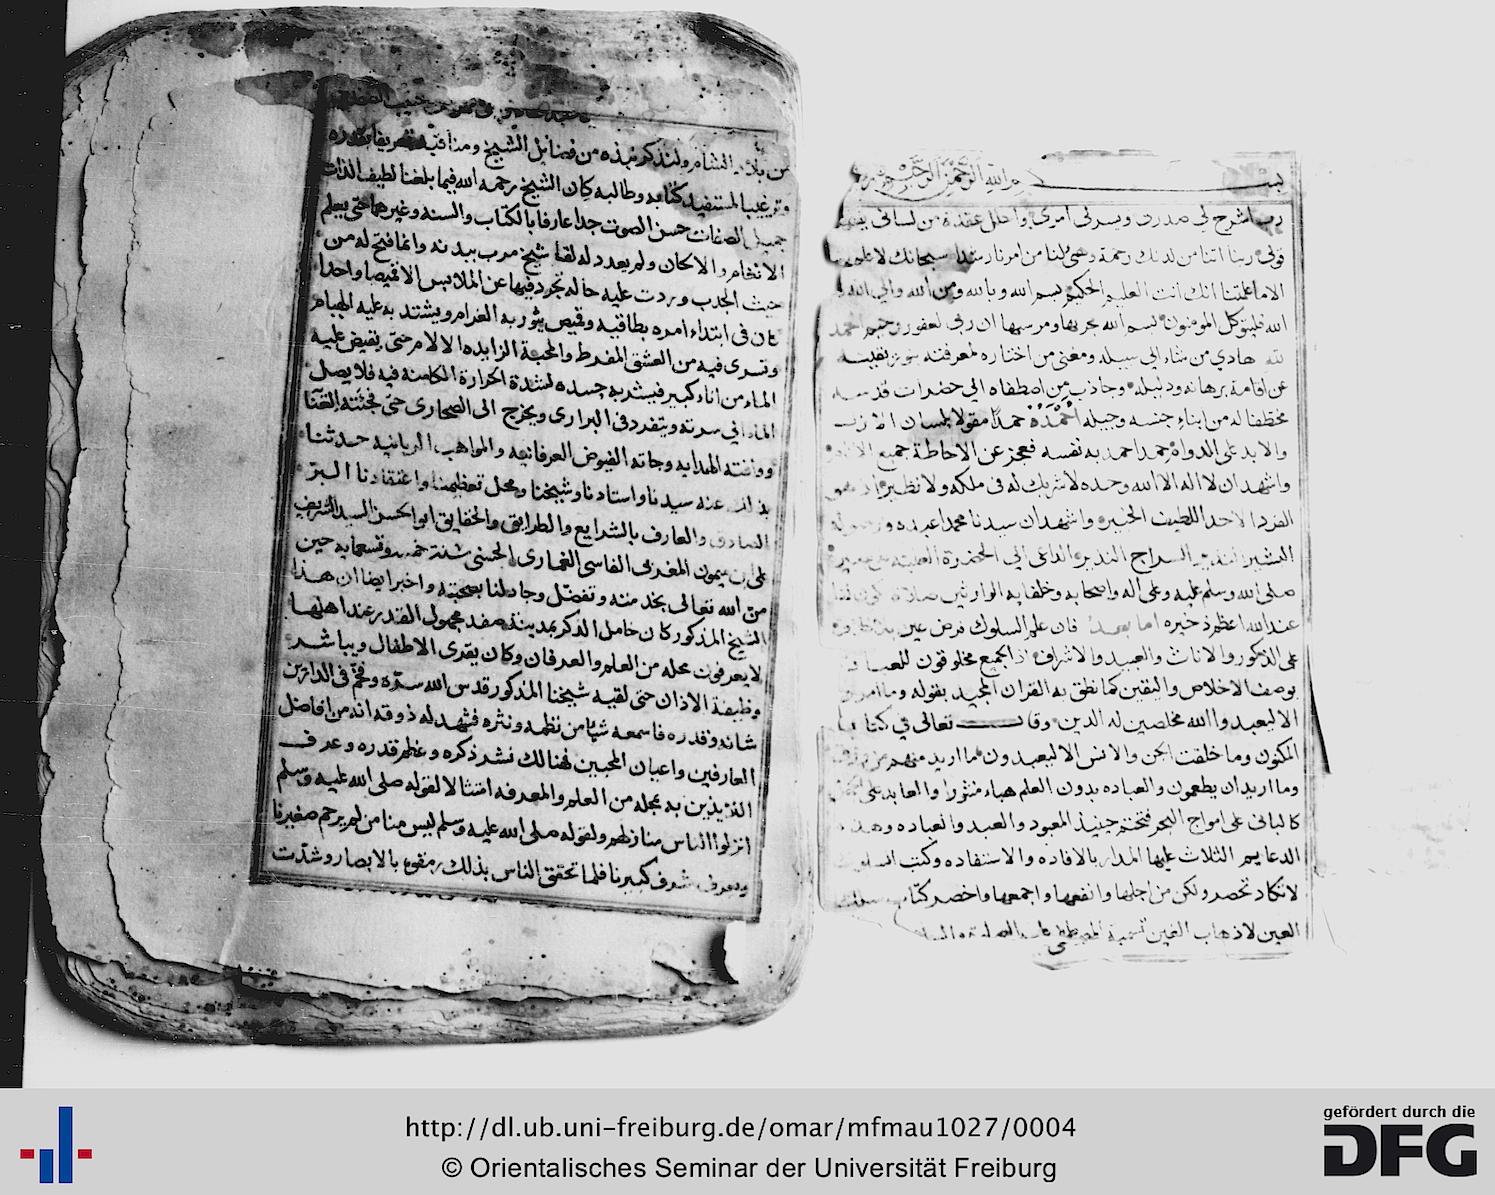 بسم الله الرحمن الرحيم
رب اشرح لي صدري ويسر لي امري واحلل عقدة من لساني يفقهوا
قولي ربنا اتنا من لدنك رحمة وهيئ لنا من امرنا رشدا سبحانك لا علم لنا
الا ما علمتنا انك انت العليم الحكيم بسم الله وبالله ومن الله والي الله
الله فليتوكل المومنون بسم الله مجريها ومرسيها ان ربي لغفور رحيم الحمد
لله هادي من شاء الي سبيله ومغني من اختاره لمعرفته
عن اقامة برهانه ودليله وجاذب من اصطفاه الي حضرات قدسه
مختطفا له من ابناء جنسه وجيله احمده حمدا مقولا بلسان الازل
والابد على الدوام حمدا حمد به نفسه فعجز عن الاحاطة جميع
واشهد ان لا اله الا الله وحده لا شريك له في ملكه ولا نظير
الفرد الاحد اللطيف الخبير واشهد ان سيدنا محمدا عبده ورسوله
البشير النذير السراج الداعي الي الحضرة
صلى الله وسلم عليه وعلى اله واصحابه وخلفايه الوارثين صلاة تكون لنا
عند الله اعظم ذخيره اما بعد فان علم السلوك فرض عين
على الذكور والاناث والعبيد والاشراف اذ الجميع مخلوقون للعباده
بوصف الاخلاص واليقين كما نطق به القران المجيد بقوله وما امروا
الا ليعبدوا الله مخلصين له الدين وقال تعالى في كتابه
المكنون وما خلقت الجن والانس الا ليعبدون ما اريد منهم من رزق
وما اريد ان يطعمون والعباده بدون العلم هباء منثورا والعابد على
كالباني على امواج البحر فتختم حينيذ المعبود والعبد والعباده وهذه
الدعايم الثلاث عليها المدار بالافاده والاستفاده وكتب السلوك
لا تكاد تحصر ولكن من اجلها وانفعها واجمعها واخصر كتاب سلك
العين لاذهاب الغين تسمية المصطفى عليه الصلاة والسلام
من بلاد الشام ولنذكر نبذه من فضايل الشيخ ومناقبه تعريفا بقدره
وترغيبا للمستفيد كتابه وطالبه كان الشيخ رحمه الله فيما بلغنا لطيف الذات
جميل الصفات حسن الصوت جدا عارفا بالكتاب والسنه وغيرهما حتى بعلم
الانغام والالحان ولم يعدد له لقا شيخ مرب ببدنه وانما فتح له من
حيث الجذب وردت عليه حاله تجرد فيها عن الملابس الا قميصا واحدا
كان في ابتداء امره بطاقيه وقميص يثور به الغرام ويشتد به عليه الهيام
وتسري فيه من العشق المفرط والمحبة الزايده الالام حتى يفيض عليه
الماء من اناء كبير فيشربه جسده لشدة الحرارة الكامنة فيه فلا يصل
الماء الي سرته ويتفرد في البراري ويخرج الى الصحاري حتى فجئته
ووافته الهدايه وجاته الفيوض العرفانيه والمواهب الربانيه حدثنا
بذلك عنه سيدنا واستاذنا وشيخنا ومحل تعظيمنا واعتقادنا البر
الصادق والعارف بالشرايع والطرايق والحقايق ابو الحسن السيد الشريف
علي بن ميمون المغربي الفاسي الغماري الحسني سنة خمس وتسعمايه حين
من الله تعالى بخدمته وتفضل وجاد لنا بصحبته واخبر ايضا ان هذا
الشيخ المذكور كان خامل الذكر بمدينة صفد مجهول القدر عند اهلها
لا يعرفون محله من العلم والعرفان وكان يقرى الاطفال ويباشر
وظيفة الاذان حتى لقيه شيخنا المذكور قدس الله سره وفخم في الدارين
شانه وقدره فاسمعه شيا من نظمه ونثره فشهد له ذوقه انه من افاضل
العارفين واعيان المحبين فهنالك نشر ذكره وعظم قدره وعرف
الذين به محله من العلم والمعرفه امتثالا لقوله صلى الله عليه وسلم
انزلوا الناس منازلهم ولقوله صلى الله عليه وسلم ليس منا من لم يرحم صغيرنا
ويعرف شرف كبيرنا فلما تحقق الناس بذلك رمقوه بالابصار وشدت
http://dl.ub.uni-freiburg.de/omar/mfmau1027/0004
© Orientalisches Seminar der Universität Freiburg
gefördert durch die
DFG